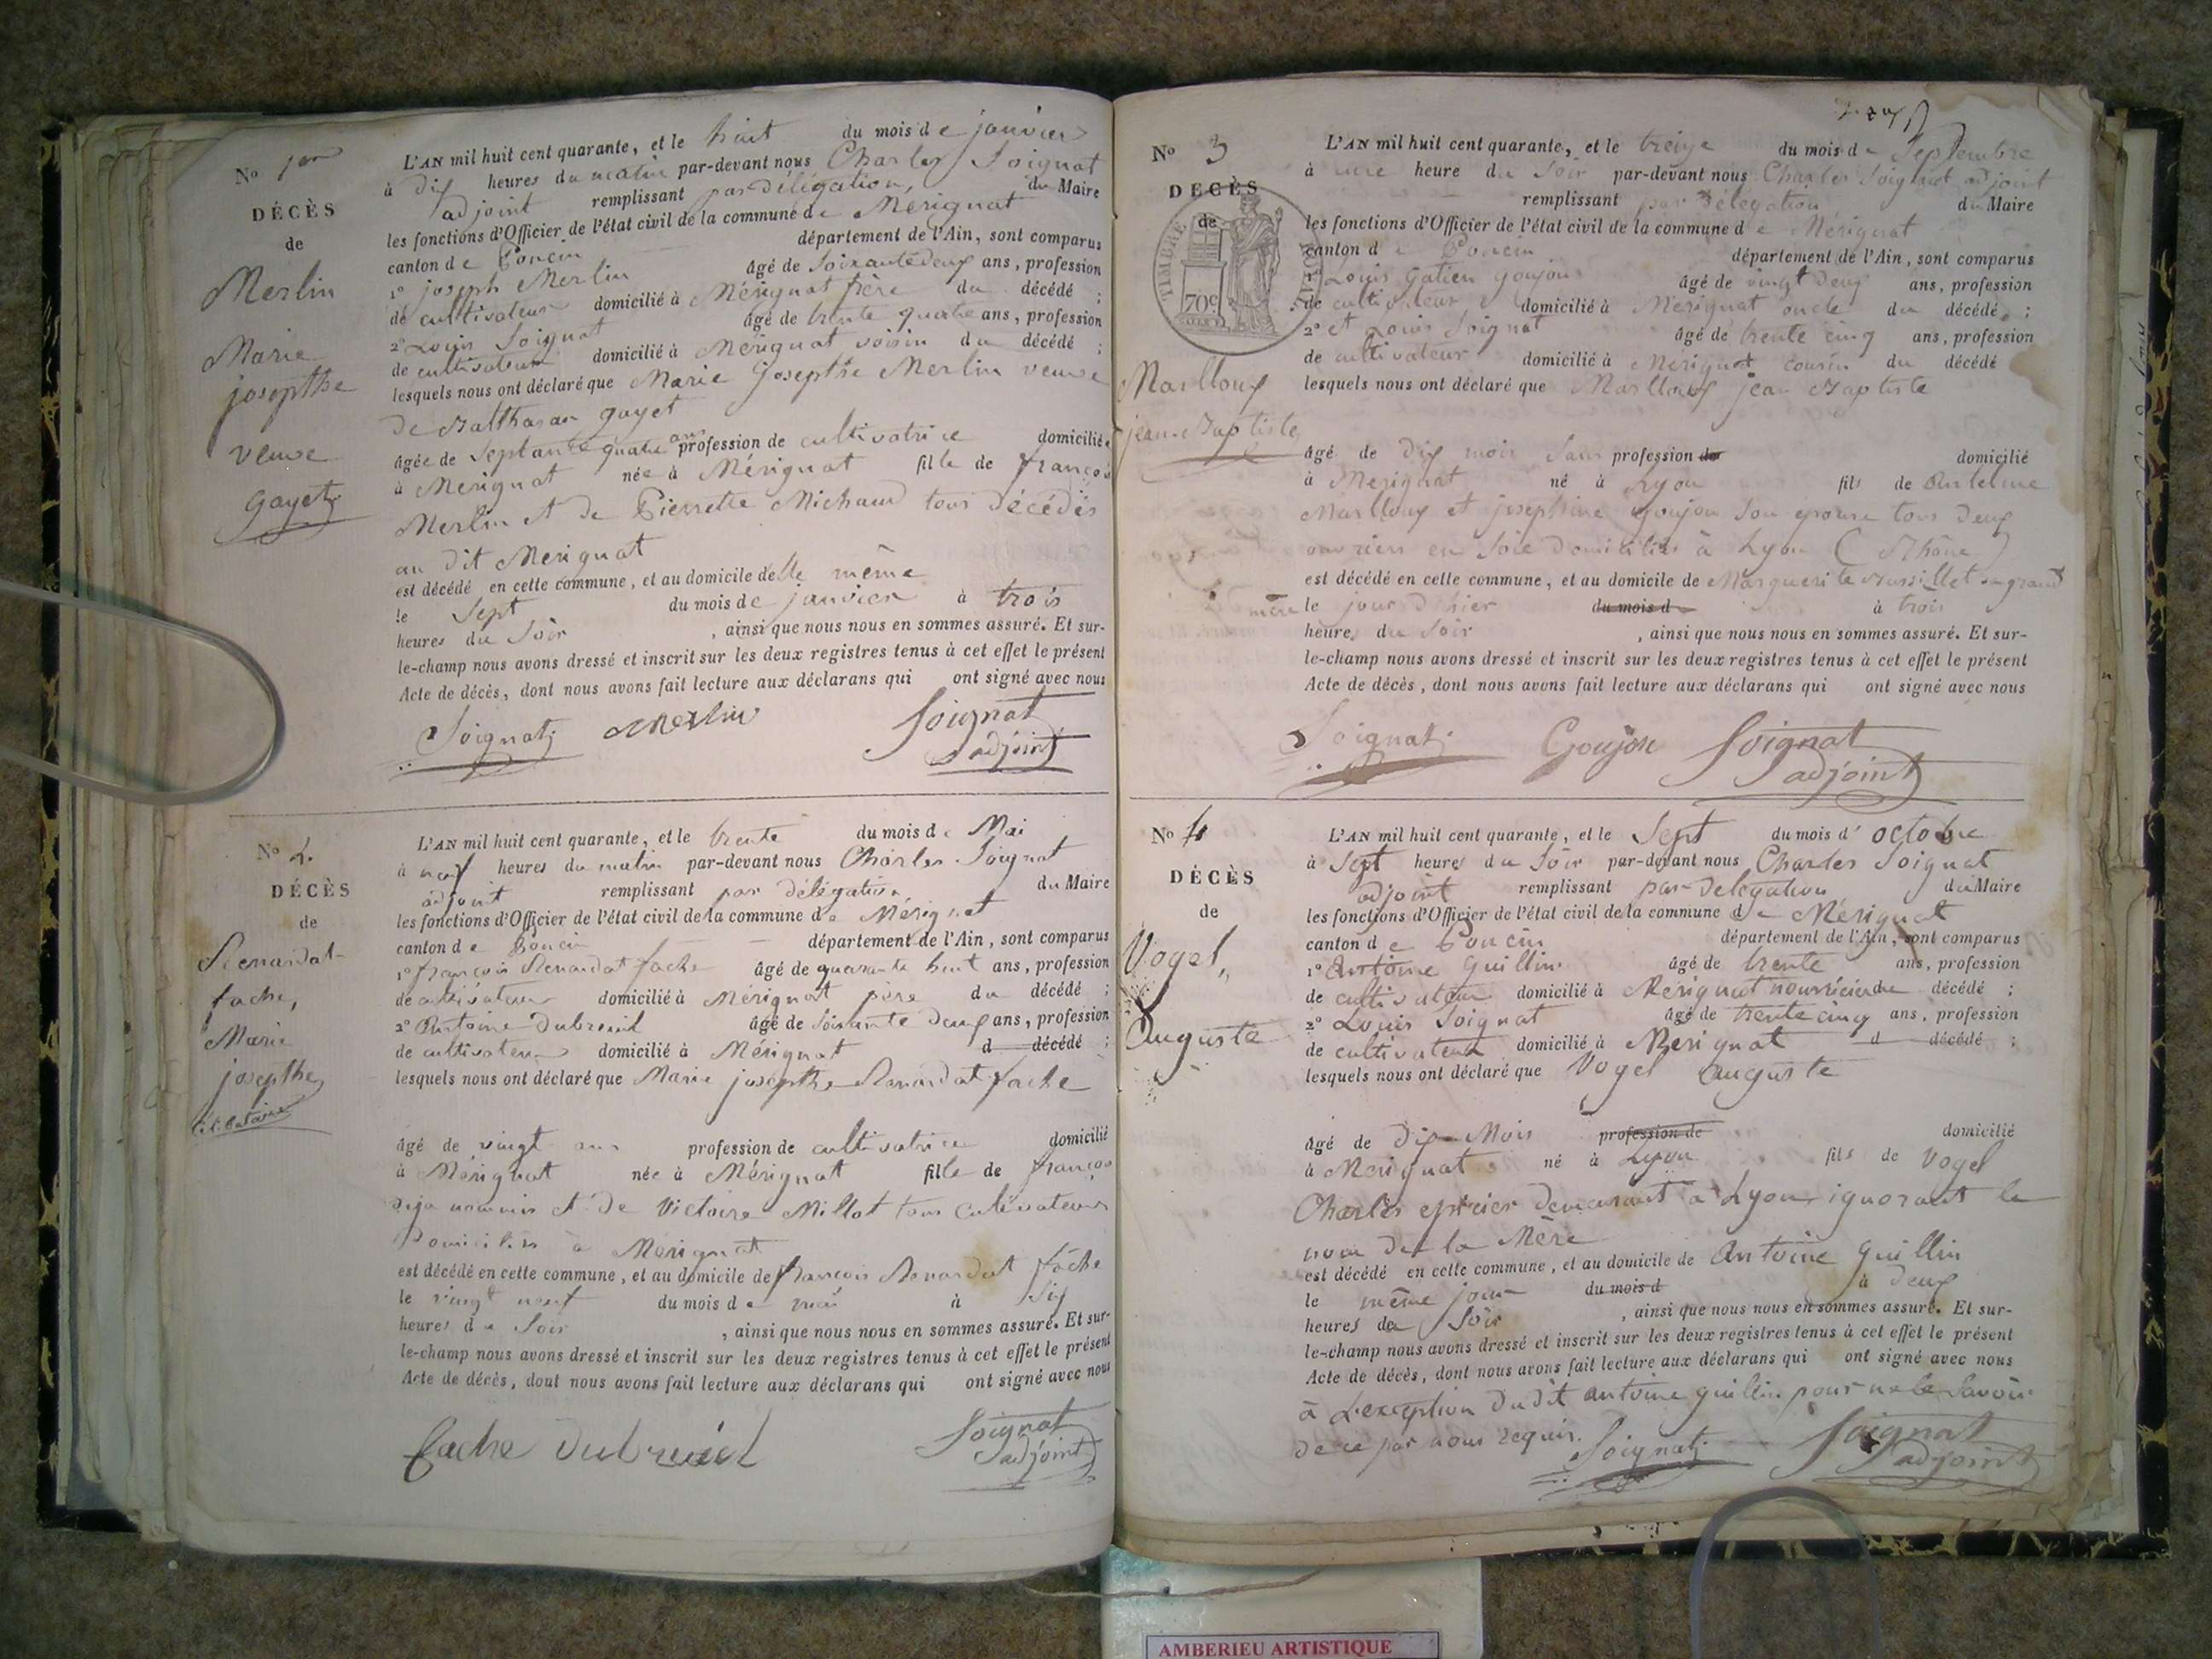 No 1er
DÉCÈS
de
Merlin
Marie
josepthe
veuve
gayet
L'AN mil huit cent quarante, et le huit du mois de janvier
à dix heures du matin par-devant nous Charles Soignat
adjoint remplissant par délégation, du Maire
les fonctions d'Officier de l'état civil de la commune de Mérignat
canton de Poncin département de l'Ain, sont comparus
1o joseph Merlin âgé de Soixante deux ans, profession
de cultivateur domicilié à Mérignat frère du décédé ;
2o Louis Soignat âgé de trente quatre ans, profession
de cultivateur domicilié à Mérignat voisin du décédé ;
lesquels nous ont déclaré que Marie Josepthe Merlin veuve
de Balthasar gayet
âgée de Septante quatre ans profession de cultivatrice domiciliée
à Mérignat née à Mérignat fille de françois
Merlin et de Pierrette Michaud tous décédés
au dit Merignat
est décédé en cette commune, et au domicile de lle même
le Sept du mois de janvier à trois
heures du Soir , ainsi que nous nous en sommes assuré. Et sur-
le-champ nous avons dressé et inscrit sur les deux registres tenus à cet effet le présent
Acte de décès, dont nous avons fait lecture aux déclarans qui ont signé avec nous
Soignat Merlin Soignat
adjoint
No 2.
DÉCÈS
de
Renardat-
fache,
Marie
josepthe
célibataire
L'AN mil huit cent quarante, et le trente du mois de Mai
à neuf heures du matin par-devant nous Charles Soignat
adjoint remplissant par délégation du Maire
les fonctions d'Officier de l'état civil de la commune de Mérignat
canton de Poncin département de l'Ain, sont comparus
1o françois Renardat fache âgé de quarante huit ans, profession
de cultivateur domicilié à Mérignat père du décédé ;
2o Antoine Dubreuil âgé de soixante deux ans, profession
de cultivateur domicilié à Mérignat d décédé ;
lesquels nous ont déclaré que Marie josepthe Renardat fache
âgé de vingt ans profession de cultivatrice domicilié
à Mérignat née à Mérignat fille de françois
déja nommé et de Victoire Millot tous cultivateurs
Domiciliés à Mérignat
est décédé en cette commune, et au domicile de françois Renardat fâche
le vingt neuf du mois de mai à Six
heures du Soir , ainsi que nous nous en sommes assuré. Et sur-
le-champ nous avons dressé et inscrit sur les deux registres tenus à cet effet le présent
Acte de décès, dont nous avons fait lecture aux déclarans qui ont signé avec nous
fache Dubreuil Soignat
adjoint
No 3
DÉCÈS
de
TIMBRE
70c
Marlloux
jean-Baptiste
L'AN mil huit cent quarante, et le treize du mois de Septembre
à une heure du Soir par-devant nous Charles Soignat adjoint
remplissant par délégation du Maire
les fonctions d'Officier de l'état civil de la commune de Mérignat
canton de Poncin département de l'Ain, sont comparus
1o Louis Gatien Goujon âgé de vingt deux ans, profession
de cultivateur domicilié à Mérignat oncle du décédé ;
2o et Louis Soignat âgé de trente cinq ans, profession
de cultivateur domicilié à Mérignat cousin du décédé
lesquels nous ont déclaré que Marlloux jean Baptiste
âgé de dix mois Sans profession de domicilié
à Mérignat né à Lyon fils de Antelme
Marlloux et josephine Goujon Son épouse tous deux
ouvriers en Soie Domiciliés à Lyon (Rhône)
est décédé en cette commune, et au domicile de Marguerite Mussillet sa grand
mère le jour D'hier du mois d à trois
heures du Soir , ainsi que nous nous en sommes assuré. Et sur-
le-champ nous avons dressé et inscrit sur les deux registres tenus à cet effet le présent
Acte de décès, dont nous avons fait lecture aux déclarans qui ont signé avec nous
Soignat Goujon Soignat
adjoint
No 4
DÉCÈS
de
Vogel,
Auguste
L'AN mil huit cent quarante, et le Sept du mois d' octobre
à Sept heures du Soir par-devant nous Charles Soignat
adjoint remplissant par délégation du Maire
les fonctions d'Officier de l'état civil de la commune de Mérignat
canton de Poncin département de l'Ain, sont comparus
1o Antoine Guillin âgé de trente ans, profession
de cultivateur domicilié à Mérignat nourricier du décédé ;
2o Louis Soignat âgé de trente cinq ans, profession
de cultivateur domicilié à Merignat d décédé ;
lesquels nous ont déclaré que Vogel Auguste
âgé de dix Mois profession de domicilié
à Merignat né à Lyon fils de Vogel
Charles epicier demeurant à Lyon ignorant le
nom de la Mère
est décédé en cette commune, et au domicile de Antoine Guillin
le même jour du mois d à deux
heures de Soir , ainsi que nous nous en sommes assuré. Et sur-
le-champ nous avons dressé et inscrit sur les deux registres tenus à cet effet le présent
Acte de décès, dont nous avons fait lecture aux déclarans qui ont signé avec nous
à L'exception Dudit antoine guillin pour ne le Savoir
de ce par nous requis. Soignat Soignat
adjoint
AMBERIEU ARTISTIQUE